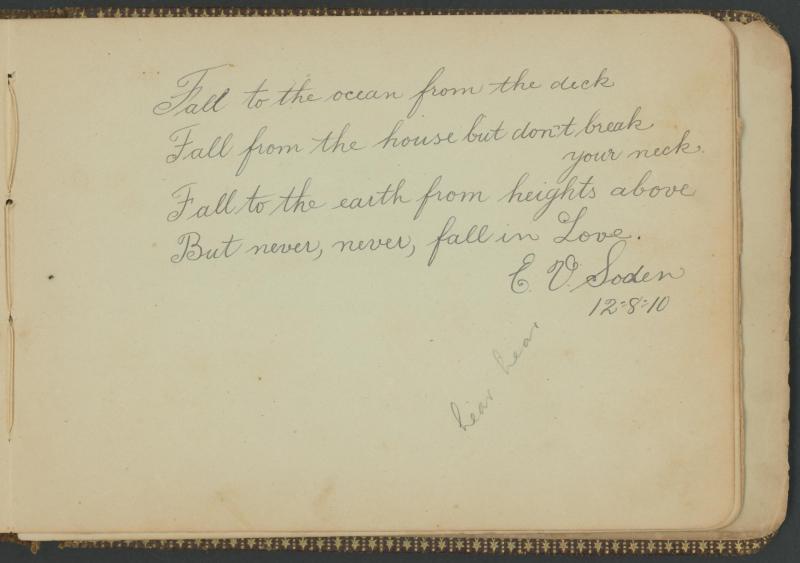 Fall to the ocean from the deck
Fall from the house but don't break
your neck.
Fall to the earth from heights above
But never, never, fall in Love.
E. V. Soden
12=8=10
hear hear